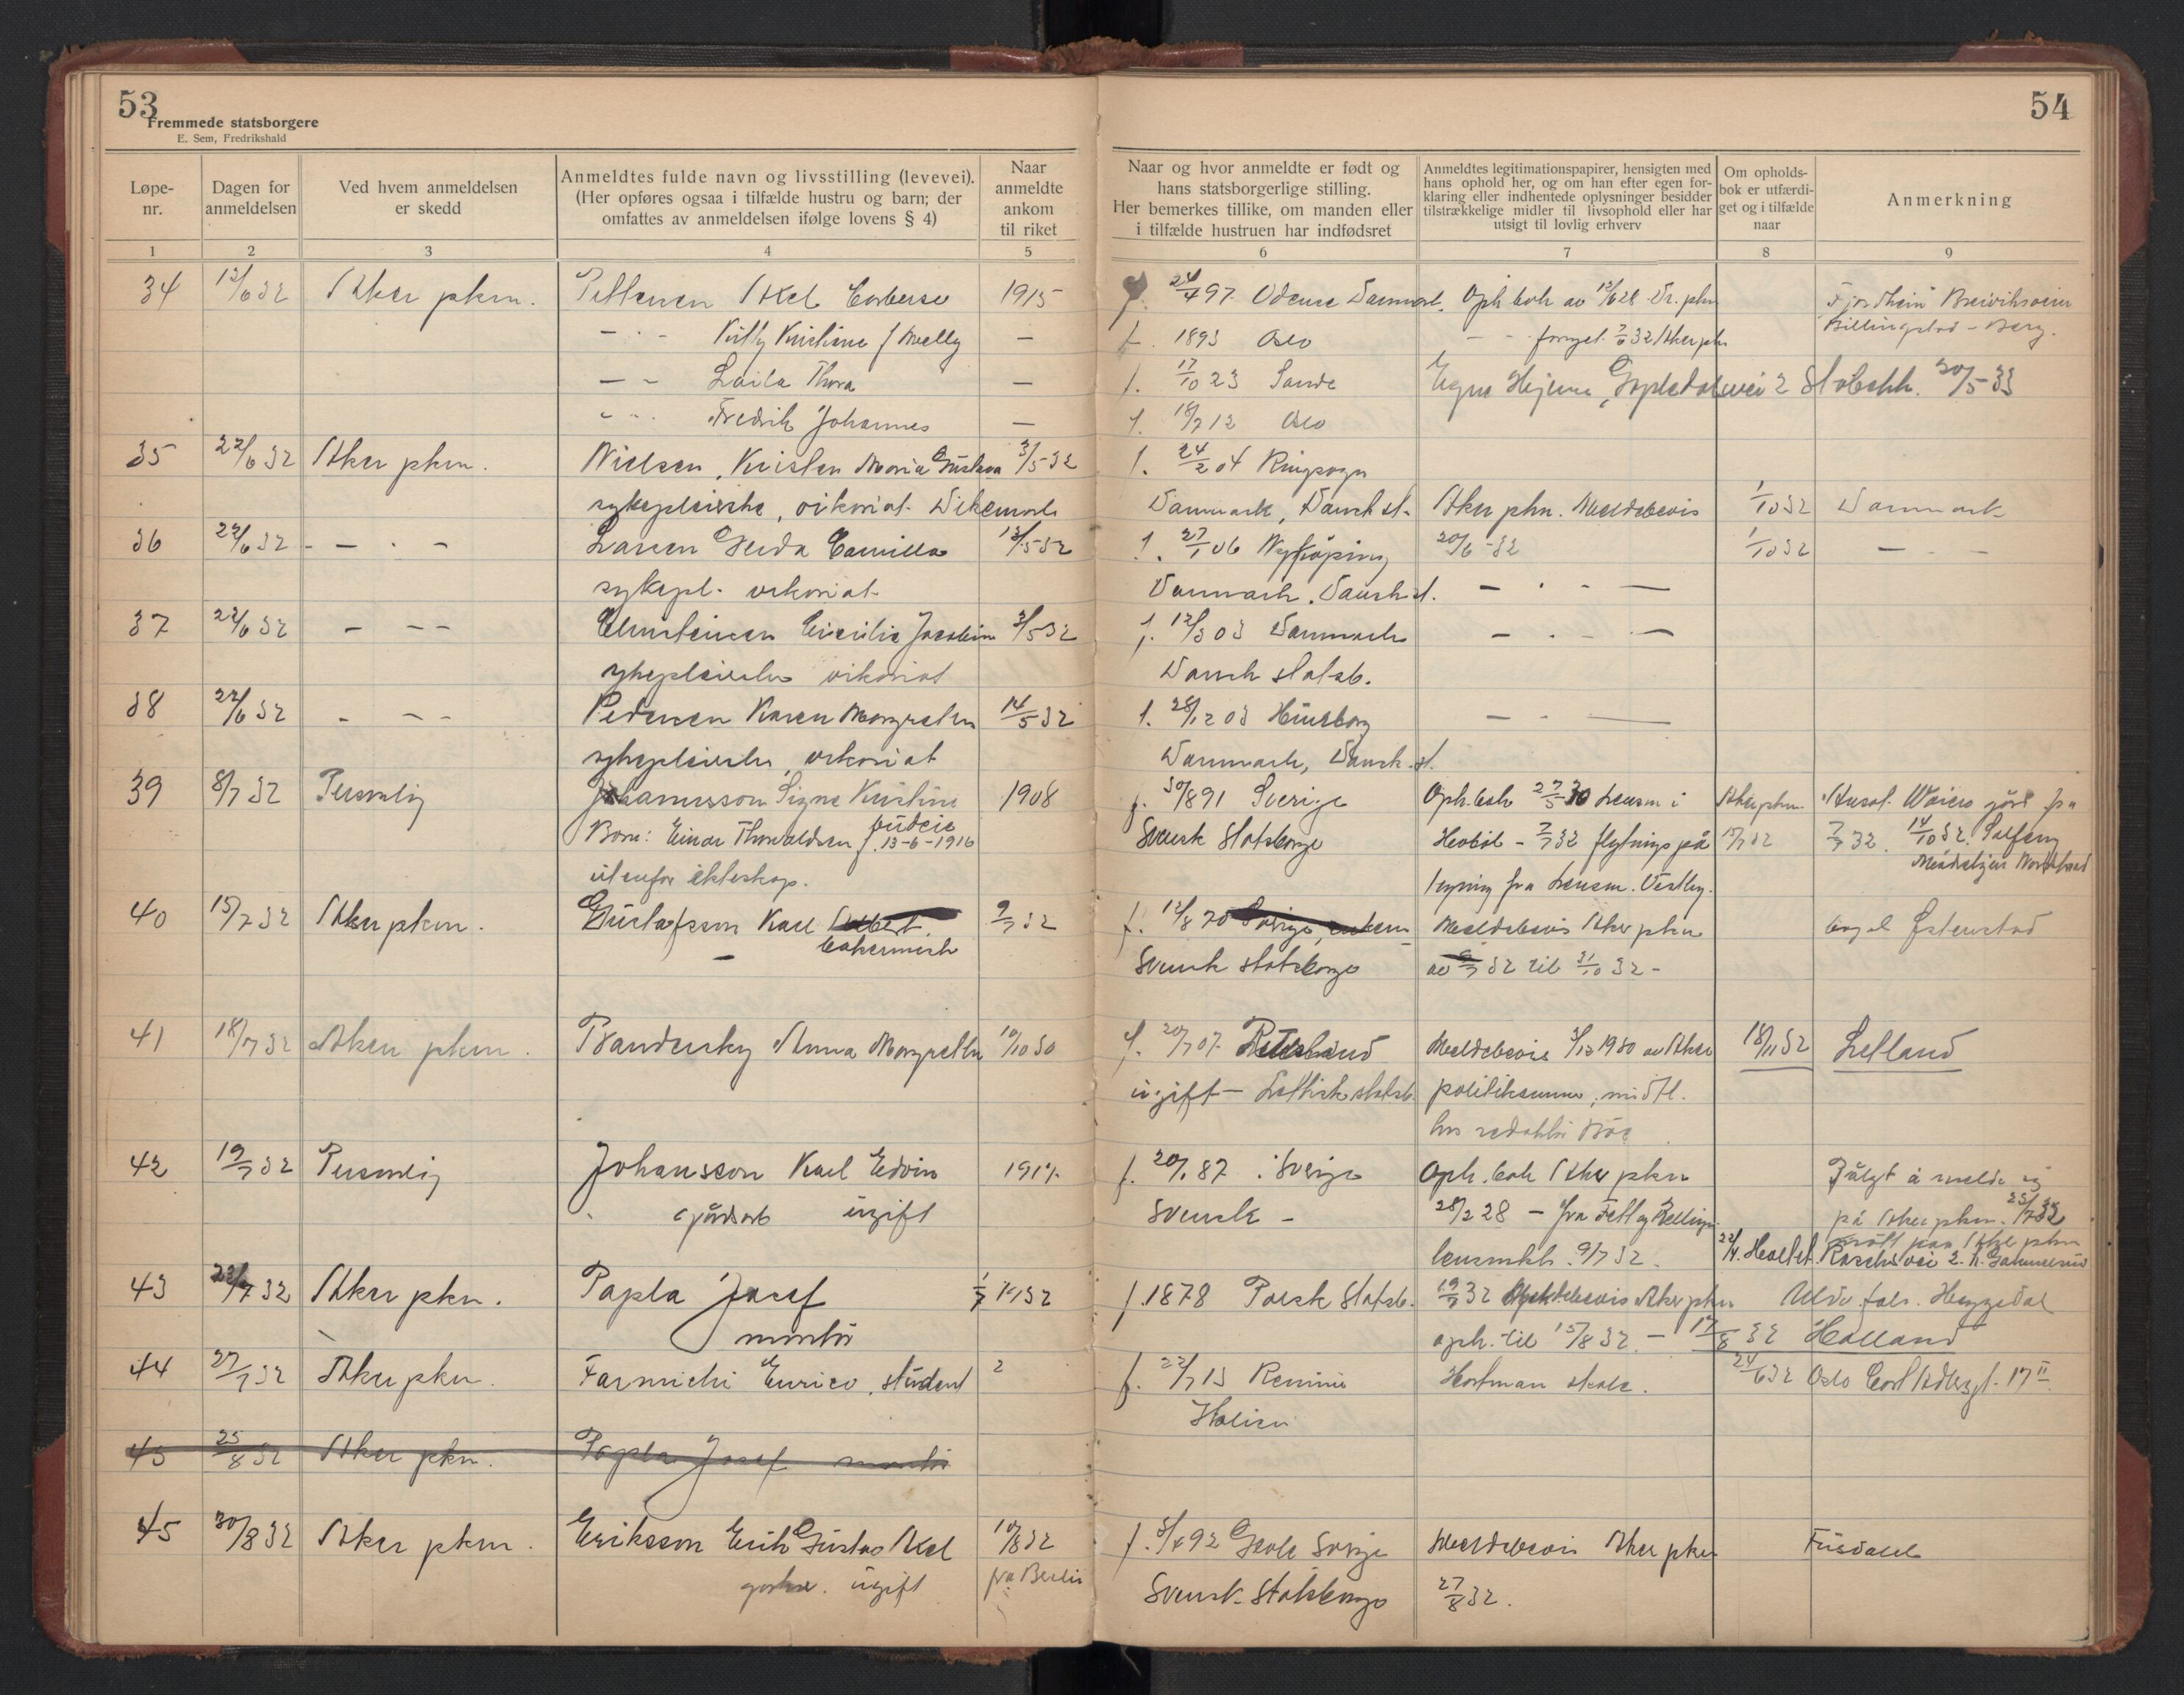 53
Fremmede statsborgere
E. Sem, Fredrikshald
Løpe-nr.
Dagen for anmeldelsen
Ved hvem anmeldelsen er skedd
Anmeldtes fulde navn og livsstilling (levevei).
(Her opføres ogsaa i tilfælde hustru og barn; der
omfattes av anmeldelsen ifølge lovens § 4)
Naar anmeldte ankom til riket
1 2 3 4 5
34 13/6 32 Aker pkm. Pettersen Axel 1915
— - - Kristine f —
— - Laila Thora —
- - - Fredrik Johannes —
35 22/6 32 Aker pkm. Nielsen, Kirsten Maria Gustava 3/5-32
sykepleierske, vikariat. Dikemark
36 22/6 32 - — . - Larsen Gerda Camilla 13/5-32
sykepl. vikariat
37 22/6 32 — - - Christensen Cicilie Jacobine 3/5 32
sykepleierske vikariat
38 22/6 32 - - - Pedersen Karen Margrethe 14/5 32
sykepleierske, vikariat
39 8/7 32 Personlig Johannesson Signe Kristine 1908
budeie
Barn: Einar Thorvaldsen f. 13-6-1916
utenfor ekteskap.
40 15/7 32 Aker pkm. Gustafsson Karl Albert. 9/7 32
—
41 18/7 32 Aker pkm. Anna Margrethe 10/10 30
42 19/7 32 Personlig Johansson Karl Edvin 1917.
gårdsarb ugift
43 23/7 32 Aker pkn. Papla Josef 1/7 32
montør
44 27/7 32 Aker pkn. Farmichi Enrico, student 2
45 25/8 32 Aker pkn. Papla Josef montør
45 30/8 32 Aker pkm. Eriksson Erik Gustav Axel 10/8 32
gartner. ugift fra Berlin
54
Naar og hvor anmeldte er født og
hans statsborgerlige stilling.
Her bemerkes tillike, om manden eller
i tilfælde hustruen har indfødsret
Anmeldtes legitimationspapirer, hensigten med
hans ophold her, og om han efter egen for-
klaring eller indhentede oplysninger besidder
tilstrækkelige midler til livsophold eller har
utsigt til lovlig erhverv
Om opholds-
bok er utfærdi-
get og i tilfælde
naar
Anmerkning
6 7 8 9
f. 24/4 97 Odense Danmark. Oph bok av 13/6 28 Dr. pkm
Billingstad - Berg.
f. 1893 Oslo — - fornyet 7/6 32 Aker pkn
f. 17/10 23 Sande Egne Hjem, 2 Stabekk. 30/5-33
f. 18/7 12 Oslo
f. 24/2 04 Ringsogn
Danmark, Dansk st. Aker pkn. Meldebevis 1/10 32 Danmark
f. 27/1 06 Nykøping 20/6-32 1/10 32 — - -
Danmark. Dansk st. — . - —
f. 12/3 03 Danmark — . - —
Dansk statsb.
f. 28/12 03 — . —
Danmark, Dansk st.
f. 30/8 91 Sverige Oph. bok 27/5 30 Lensm i Aker pkm.
Svensk Statsborger Hobøl - 7/7 32 flytnings på 15/7 32 7/7 32. 14/10 32.
tegning fra Lensm. Vestby.
f. 12/8 70 Sverige, Meldebevis Aker pkn Østenstad
Svensk statsborger av 9/7 32 til 31/10 32 -
f. 20/7 07 Meldebevis 3/12 1930 av Aker 18/11 32 Letland
ugift - Lettisk statsb. politikammer, midtl.
hos redaktør
f. 20/1 87 i Sverige Oph. bok Aker pkn Pålagt å melde sig
Svensk - 28/2 28 - fra på Aker pkm. 25/7 32
lensmkt. 9/7 32.
f. 1878 Polsk Statsb. 19/7 32 Meldebevis Aker pkn Heggedal
oph. til 15/8 32. — 17/8 32 Holland
f. 22/7 13 Remini Hartman skole. 24/6 32 Oslo 17 II
Italien
f. 3/4 92 Gevle Sverige Meldebevis Aker pkn Fusdal
Svensk Statsborger 27/8 32.